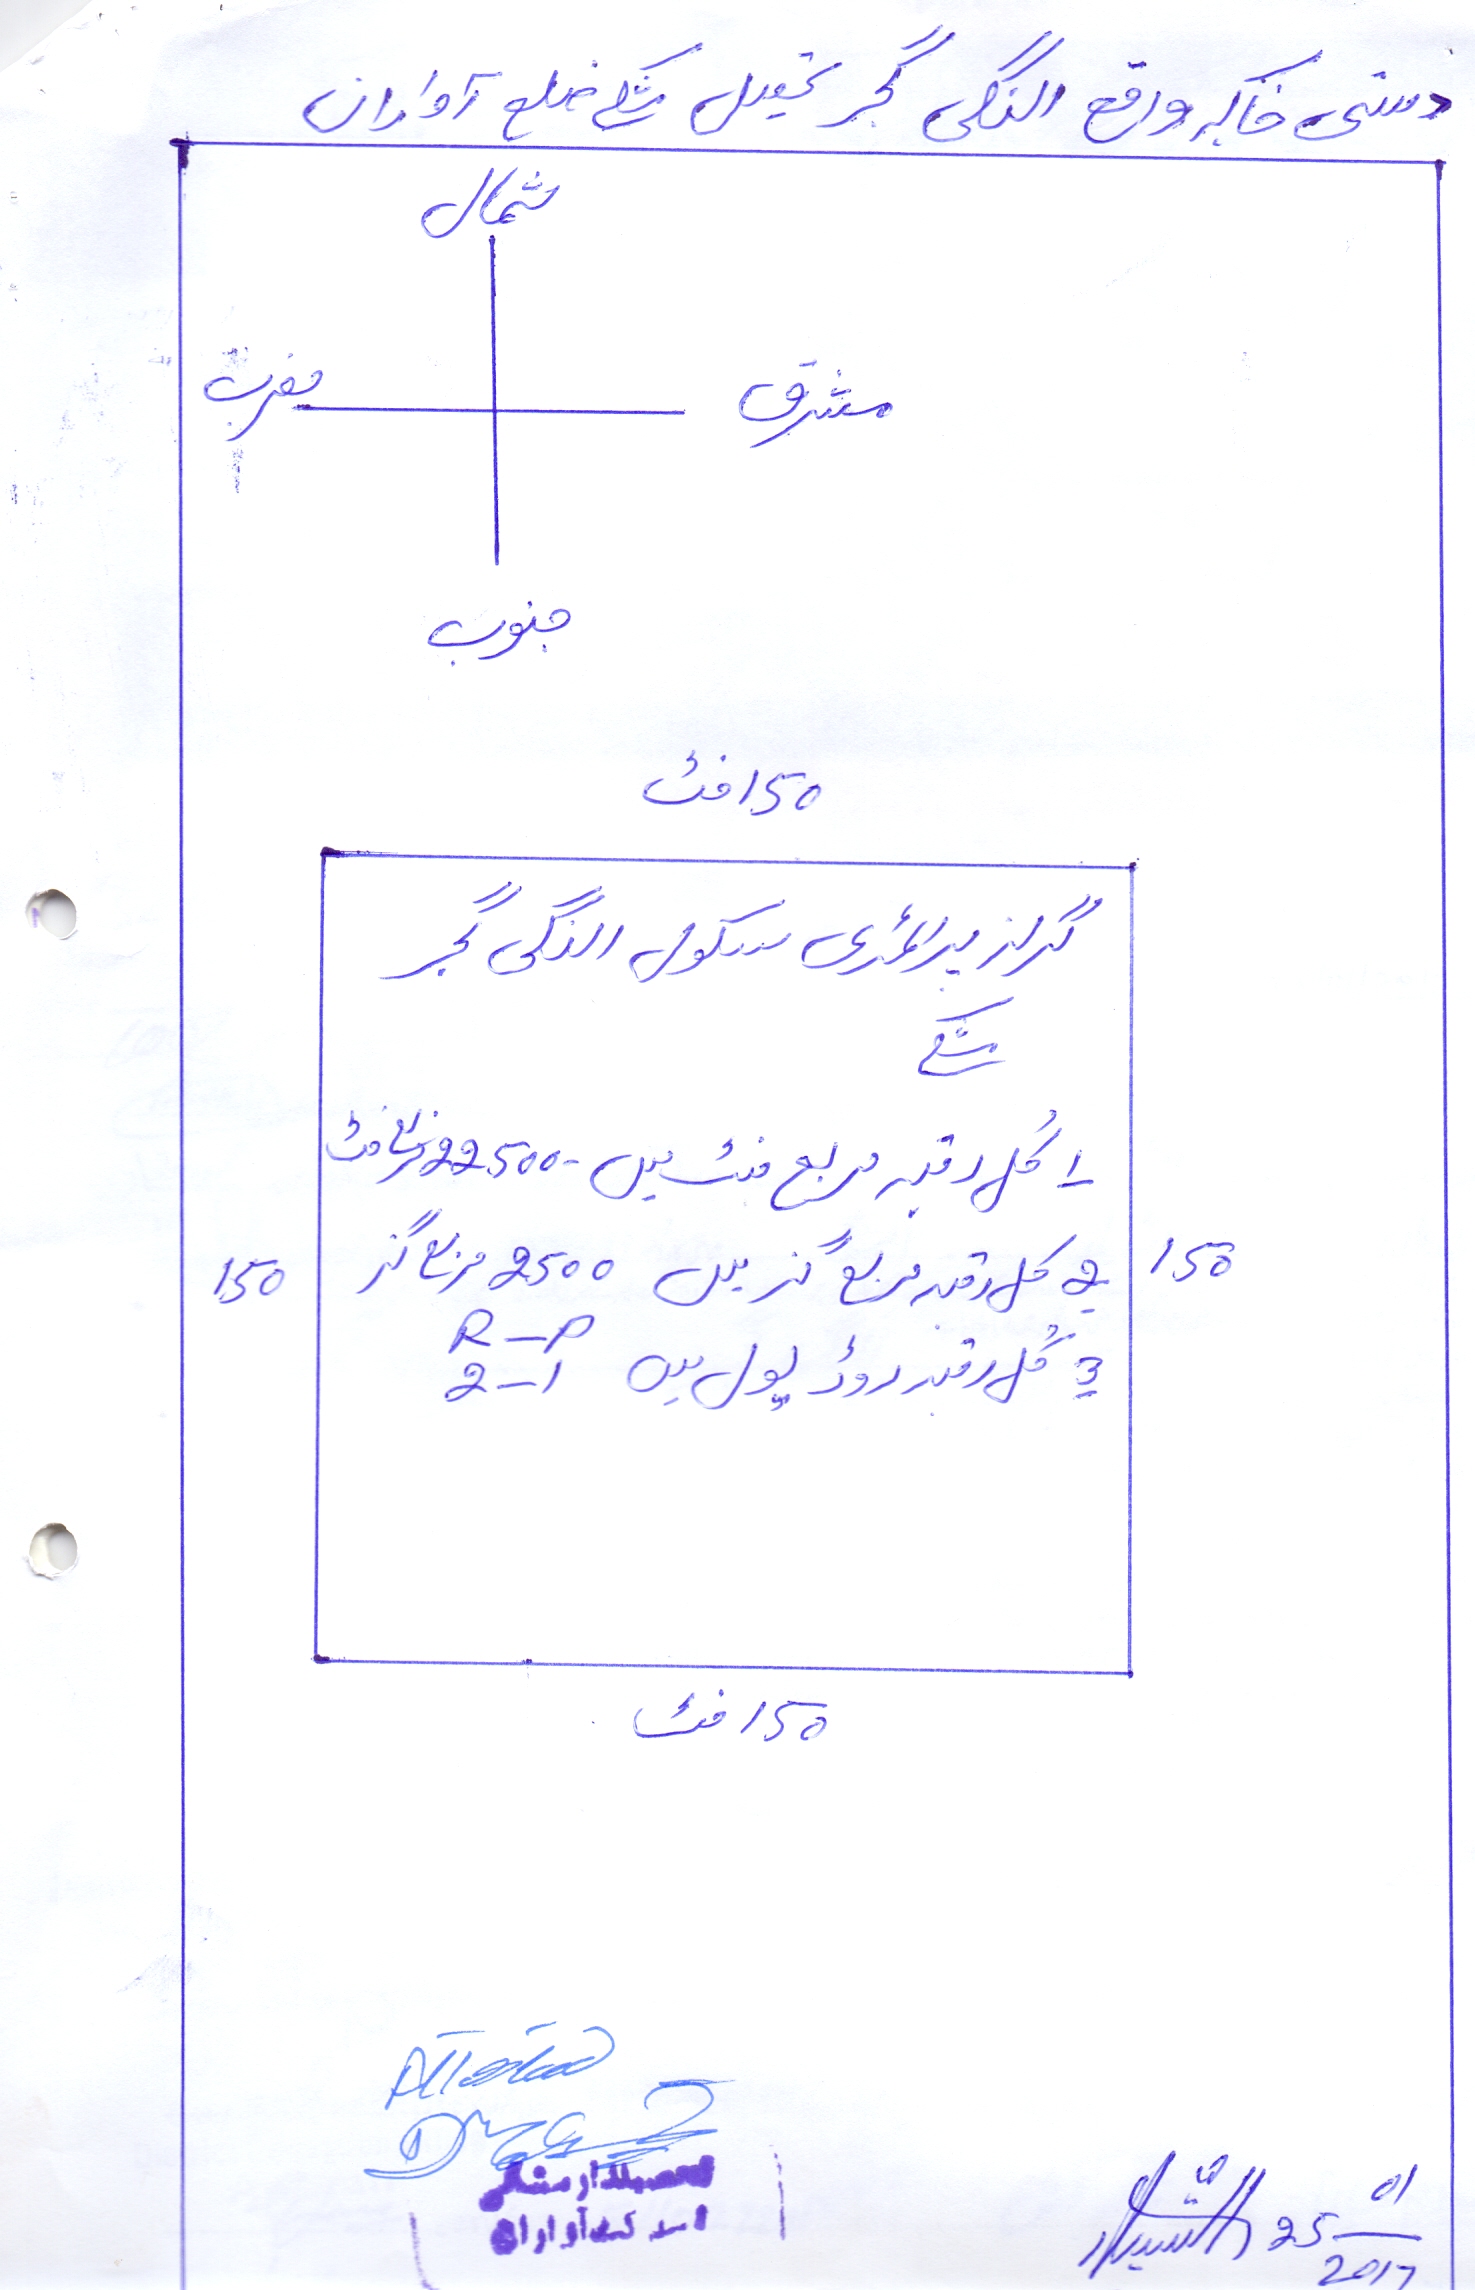 دستی خاکہ واقع النگی گجر تحصیل مشکے ضلع آواران
شمال
مغرب
مشرق
جنوب
150 فٹ
گرلز پرائمری سکول النگی گجر
مشکے
1 کُل رقبہ مربع فٹ میں 22500- مربع فٹ
2 کل رقبہ مربع گز میں 2500 مربع گز
150
150
R-P
3 کُل رقبہ روڈ پول میں 2-1
150 فٹ
Attested
تحصیلدار مشکے
آواران
25 01
2017